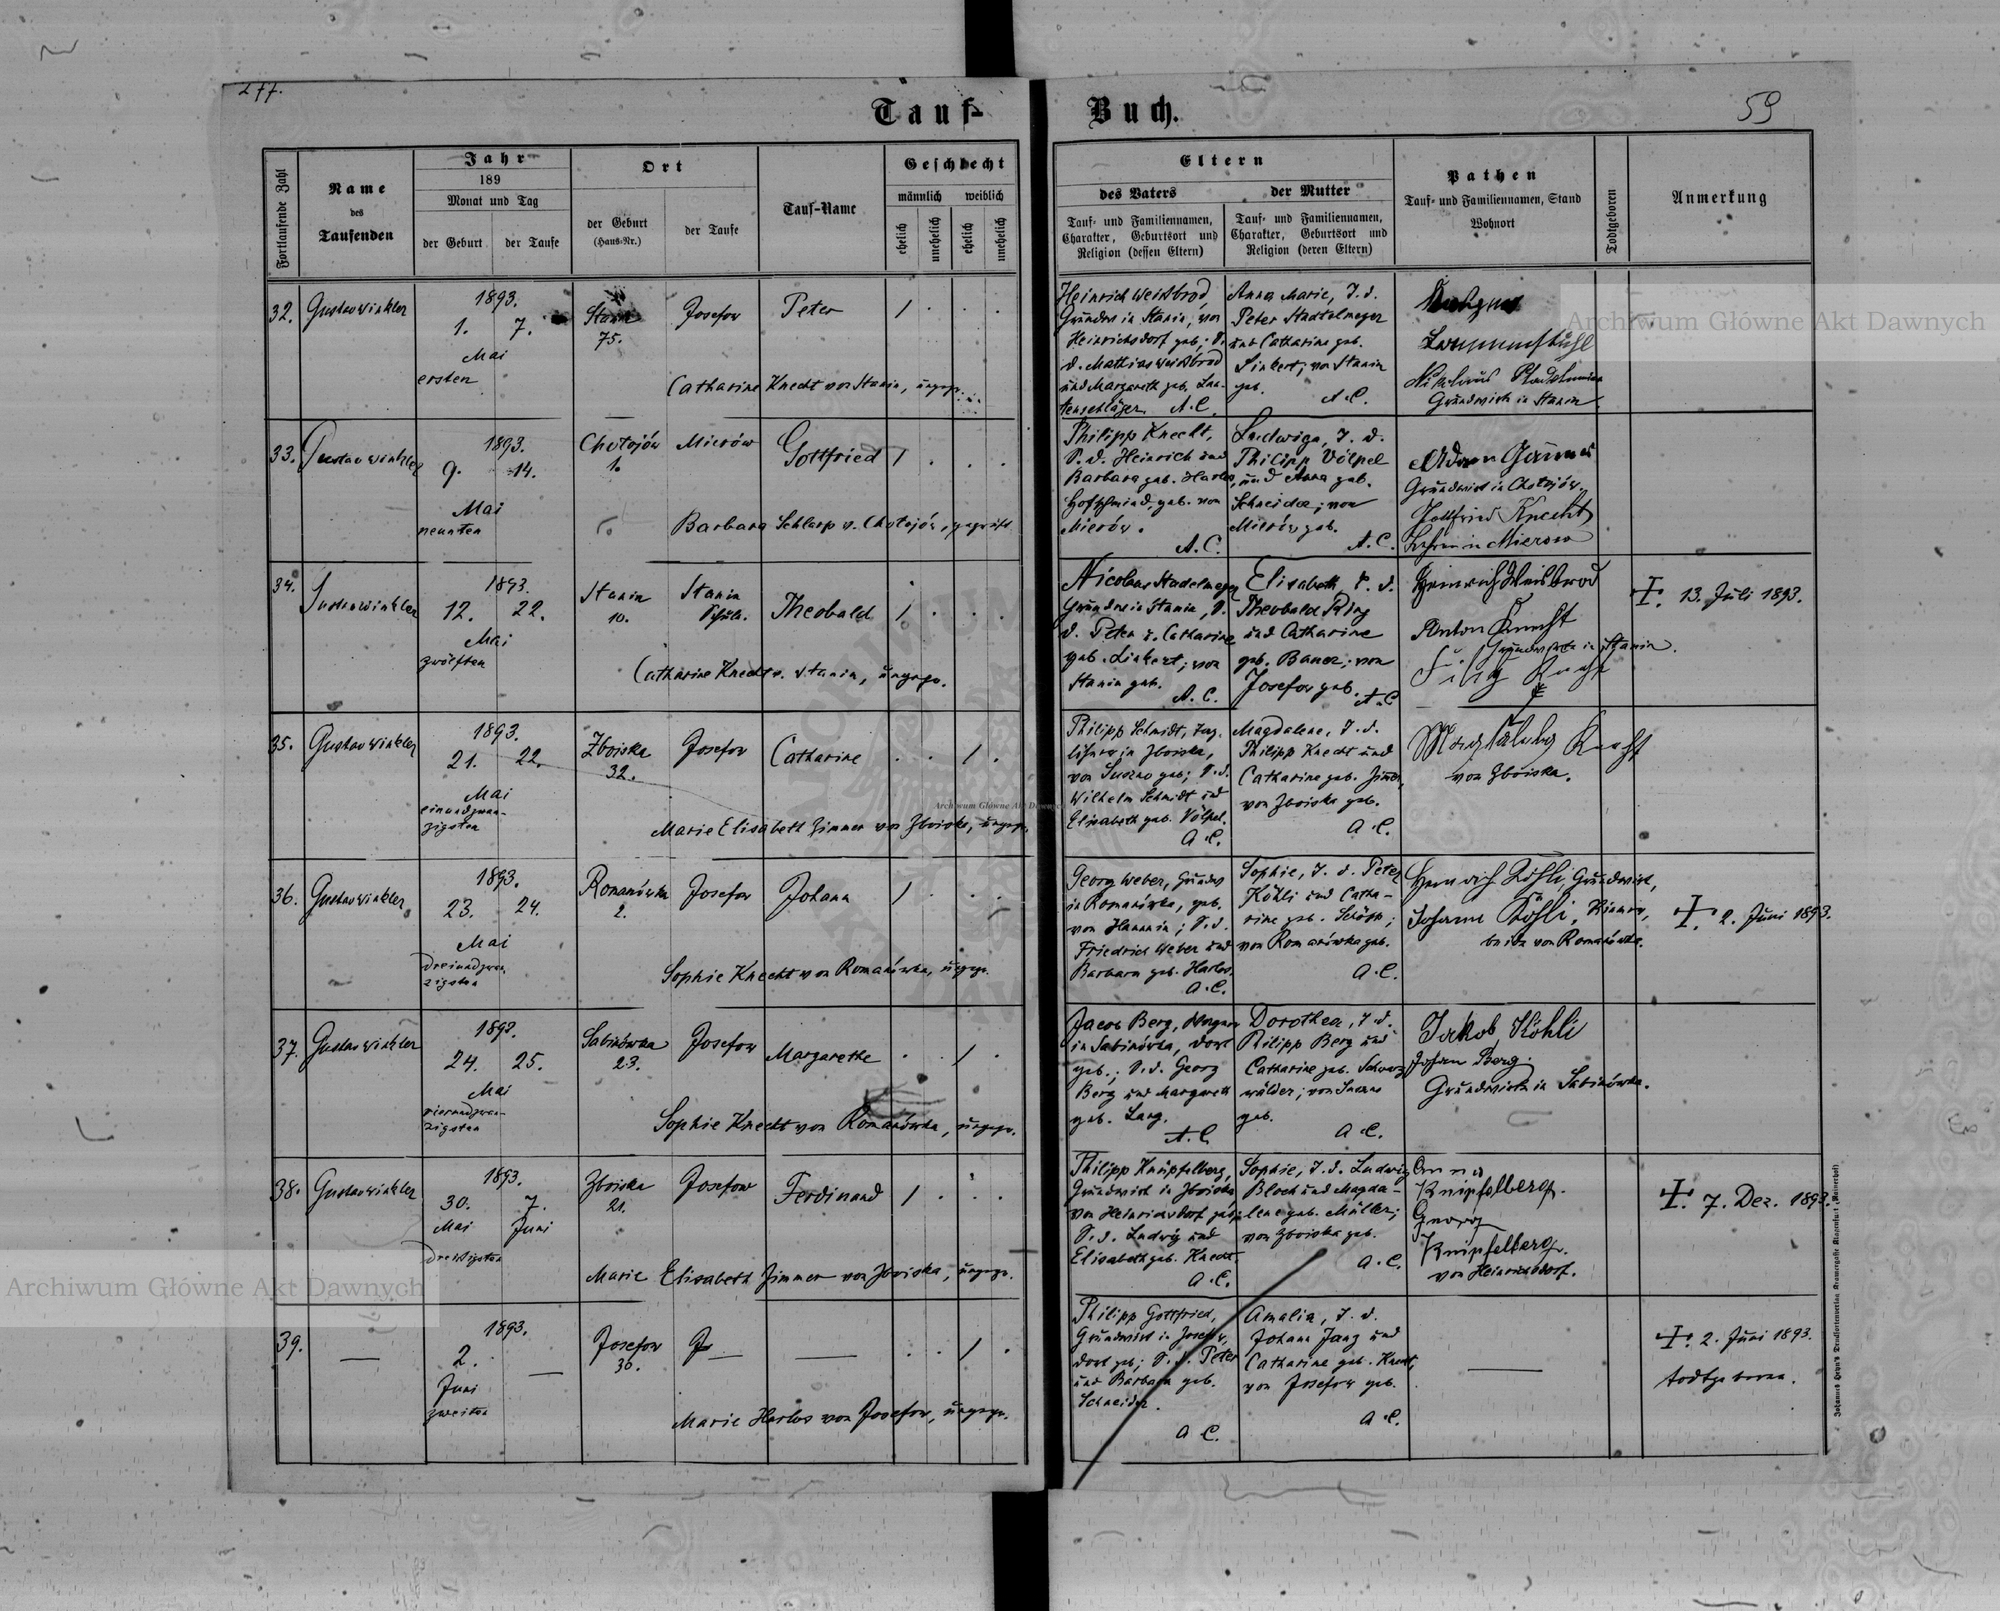 277.
Tauf-
Buch.
59
Fortlaufende Zahl
Name
des
Taufenden
Jahr
189
Monat und Tag
der Geburt
der Taufe
Ort
der Geburt
(Haus-Nr.)
der Taufe
Tauf-Name
Geschlecht
männlich
weiblich
ehelich
unehelich
ehelich
unehelich
Eltern
des Vaters
Tauf- und Familiennamen,
Charakter, Geburtsort und
Religion (dessen Eltern)
der Mutter
Tauf- und Familiennamen,
Charakter, Geburtsort und
Religion (deren Eltern)
Pathen
Tauf- und Familiennamen, Stand
Wohnort
Todtgeboren
Anmerkung
32.
Gustav Winkler
1893.
1. 7.
Mai
ersten
Stanin
75.
Josefow
Peter
Catharine Knecht von Stanin, ungepr.
Heinrich Weißbrod,
Grundw in Stanin, von
Heinrichsdorf geb; S.
d. Mathias Weißbrod
und Margareth geb. Lau-
tenschläger. A.C.
Anna Marie, T. d.
Peter Stadtelmeyer
und Catharine geb.
Linkert; von Stanin
geb.
A.C.
Nikolaus
Grundwirth in Stanin.
33.
Gustav Winkler
1893.
9. 14.
Mai
neunten
Chotojów
1.
Mierów
Gottfried
Barbara Schlarp v. Chotojów, geprüft
Philipp Knecht,
S. d. Heinrich und
Barbara geb. Harlos,
geb. von
Mierów.
A.C.
Ludwiga, T. d.
Philipp Völpel
und Anna geb.
Schneider; von
Mierów geb.
A.C.
Adam
Grundwirt in Chotojów.
Gottfried Knecht
Lehrer in Mierow
34.
Gustav Winkler
1893.
12. 22.
Mai
zwölften
Stanin
10.
Stanin
Schule.
Theobald
Catharine Knecht v. Stanin, ungepr.
Nicolaus Stadelmeyer
Grundw in Stanin, S.
d. Peter u. Catharine
geb. Linkert; von
Stanin geb.
A.C.
Elisabeth T. d.
Theobald Ring
und Catharine
geb. Bauer; von
Josefow geb. A.C
Heinrich Weisbrod
Anton Knecht
Grundwirte in Stanin.
☩. 13. Juli 1893.
35.
Gustav Winkler
1893.
21. 22.
Mai
einundzwan-
zigsten
Zboiska
32.
Josefow
Catharine
Marie Elisabeth Zimmer von Zboiska, ungepr.
Philipp Schmidt, Tag-
löhner in Zboiska,
von Suszno geb; S.d.
Wilhelm Schmidt und
Elisabeth geb. Völpel.
A.C.
Magdalene, T. d.
Philipp Knecht und
Catharine geb. Zimmer,
von Zboiska geb.
A.C.
Knecht
von Zboiska.
36.
Gustav Winkler
1893.
23. 24.
Mai
dreiundzwan
zigsten
Romanówka
2.
Josefow
Johann
Sophie Knecht von Romanówka, ungepr.
Georg Weber, Grundw
in Romanówka, geb.
von Hannin; S.d.
Friedrich Weber und
Barbara geb. Harlos.
A.C.
Sophie, T. d. Peter
Köhli und Catha-
rine geb. Schöpp;
von Romanówka geb.
A.C.
Heinrich Köhli, Grundwirt,
Johann Köhli,
beide von Romanówka.
☩. 2. Juni 1893.
37.
Gustav Winkler
1893.
24. 25.
Mai
vierundzwan-
zigsten
Sabinówka
23.
Josefow
Margarethe
Sophie Knecht von Romanówka, ungepr.
Jacob Berg, Wagner
in Sabinówka, dort
geb.; S.d. Georg
Berg und Margareth
geb. Lang.
A.C.
Dorothea, T.d.
Philipp Berg und
Catharine geb. Schwarz
wälder; von Suszno
geb.
A.C.
Jakob Köhli
Johan Berg.
Grundwirte in Sabinówka.
38.
Gustav Winkler
1893.
30. 7.
Mai Juni
dreißigsten
Zboiska
21.
Josefow
Ferdinand
Marie Elisabeth Zimmer von Zboiska, ungepr.
Philipp Knipfelberg,
Grundwirt in Zboiska
von Heinrichsdorf geb;
S.d. Ludwig und
Elisabeth geb. Knecht.
A.C.
Sophie, T.d. Ludwig
Bloch und Magda-
lene geb. Müller;
von Zboiska geb.
A.C.
Anna
Knipfelberg.
Georg
Knipfelberg.
von Heinrichsdorf.
☩. 7. Dez. 1893.
39.
1893.
2.
Juni
zweiten
Josefow
36.
Marie Harlos von Josefow, ungepr.
Philipp Gottfried,
Grundwirt in Josefow,
dort geb; S.d. Peter
und Barbara geb.
Schneider.
A.C.
Amalia, T. d.
Johann Jang und
Catharine geb. Knecht,
von Josefow geb.
A.C.
☩. 2. Juni 1893.
todtgeboren.
Archiwum Główne Akt Dawnych
Archiwum Główne Akt Dawnych
Archiwum Główne Akt Dawnych